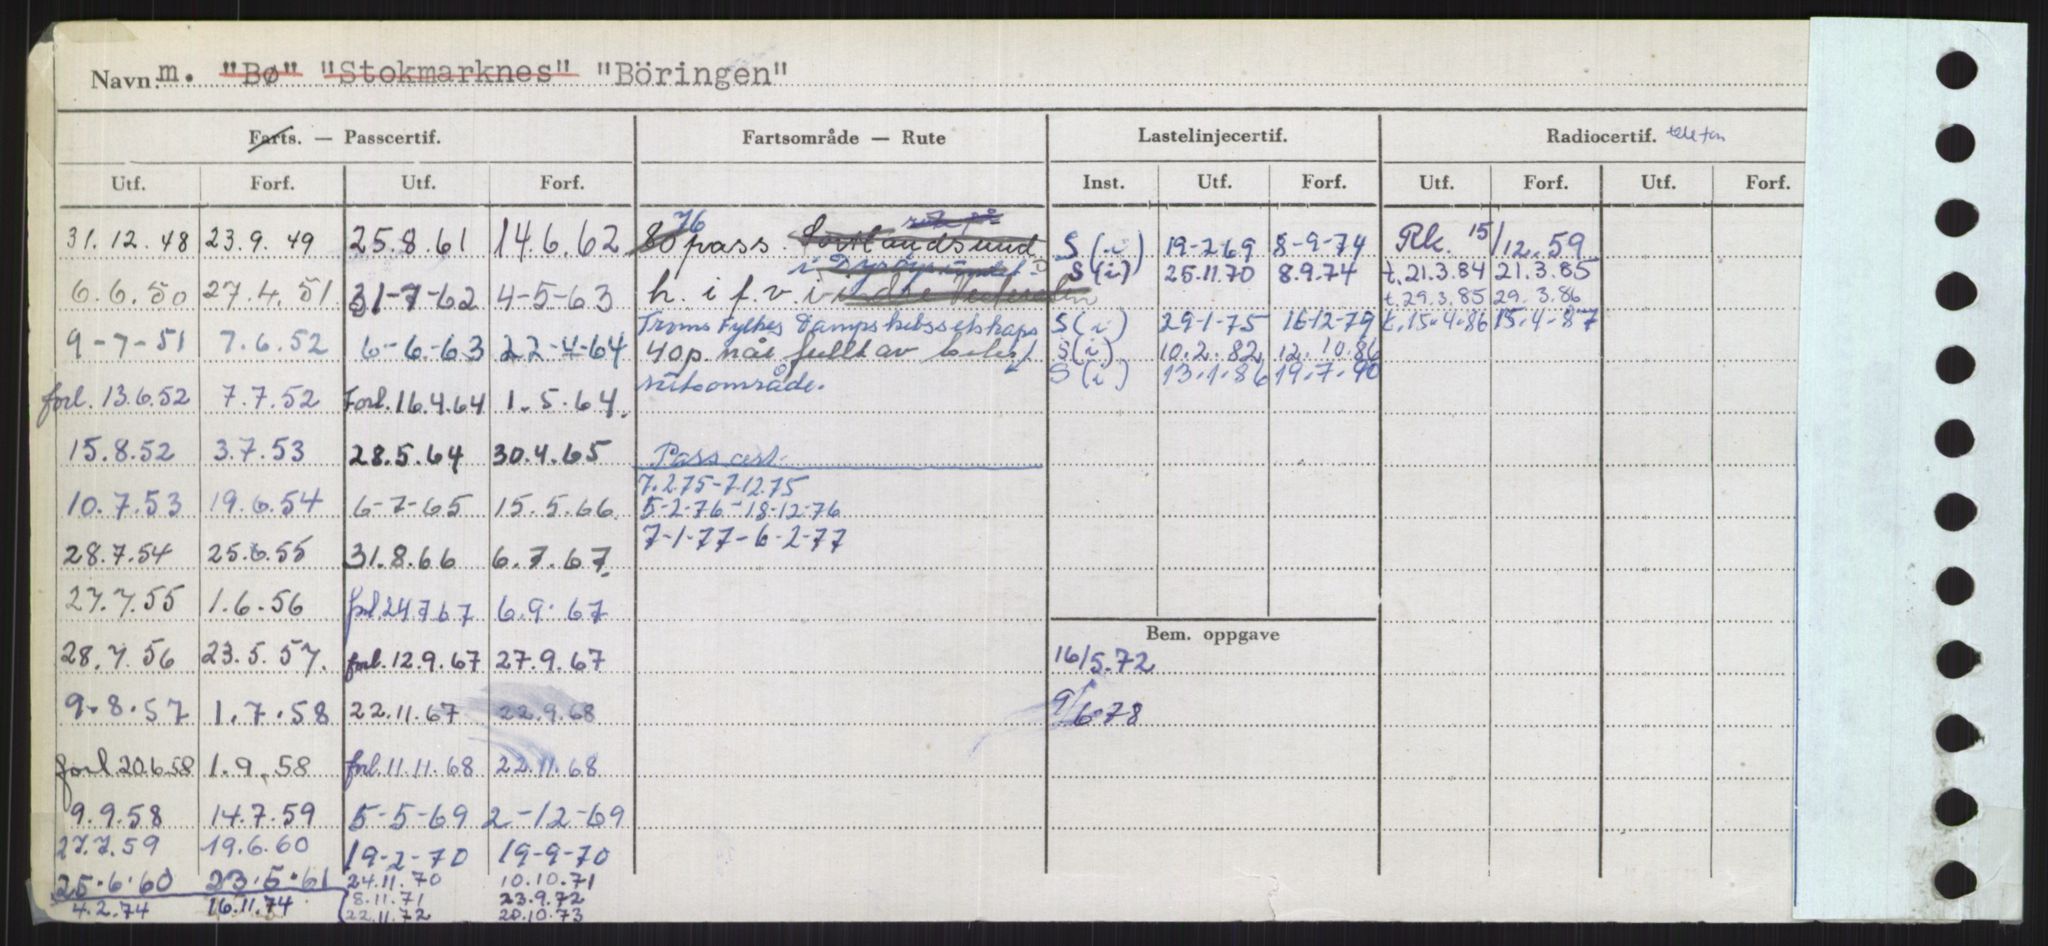 Navn. m. "Bø" "Stokmarknes" "Böringen"
Farts. — Passcertif. Fartsområde — Rute Lastelinjecertif. Radiocertif.
Utf. Forf. Utf. Forf. Inst. Utf. Forf. Utf. Forf. Utf. Forf.
31.12.48 23.9.49 25.8.61 14.6.62 80 76 pass. Sortlandsund S(i) 19-2-69 8-9-74 Rk. 15/12.59
S(i) 25.11.70 8.9.74 t.21.3.84 21.3.85
6.6.50 27.4.51 31-7-62 4-5-63 h. i f. v. i indre Vesterålen t.29.3.85 29.3.86
Troms Fylkes Dampskibsselskaps S(i) 29-1-75 16-12-79 t.15-4-86 15-4-87
9-7-51 7.6.52 6-6-63 22-4-64 40p. når fullt av biler S(i) 10.2.82 12.10.86
rutsområde. S(i) 13.1.86 19.7.90
forl. 13.6.52 7.7.52 Forl. 16.4.64 1.5.64.
15.8.52 3.7.53 28.5.64 30.4.65 Pass cert.
7.2.75-7.12.75
10.7.53 19.6.54 6-7-65 15.5.66 5-2-76-18-12-76
7-1-77-6-2-77
28.7.54 25.6.55 31.8.66 6.7.67.
27.7.55 1.6.56 forl. 24767 6.9.67
Bem. oppgave
28.7.56 23.5.57. forl. 12.9.67 27.9.67 16/5.72
9.8.57 1.7.58 22.11.67 22.9.68 9/6-78
forl 20.6.58 1.9.58 forl. 11.11.68 22.11.68
9.9.58 14.7.59 5-5-69 2-12-69
27.7.59 19.6.60 19-2-70 19-9-70
25.6.60 23.5.61 24.11.70 10.10.71
4.2.74 16.11.74 8.11.71 23.9.72
22.11.72 20.10.73